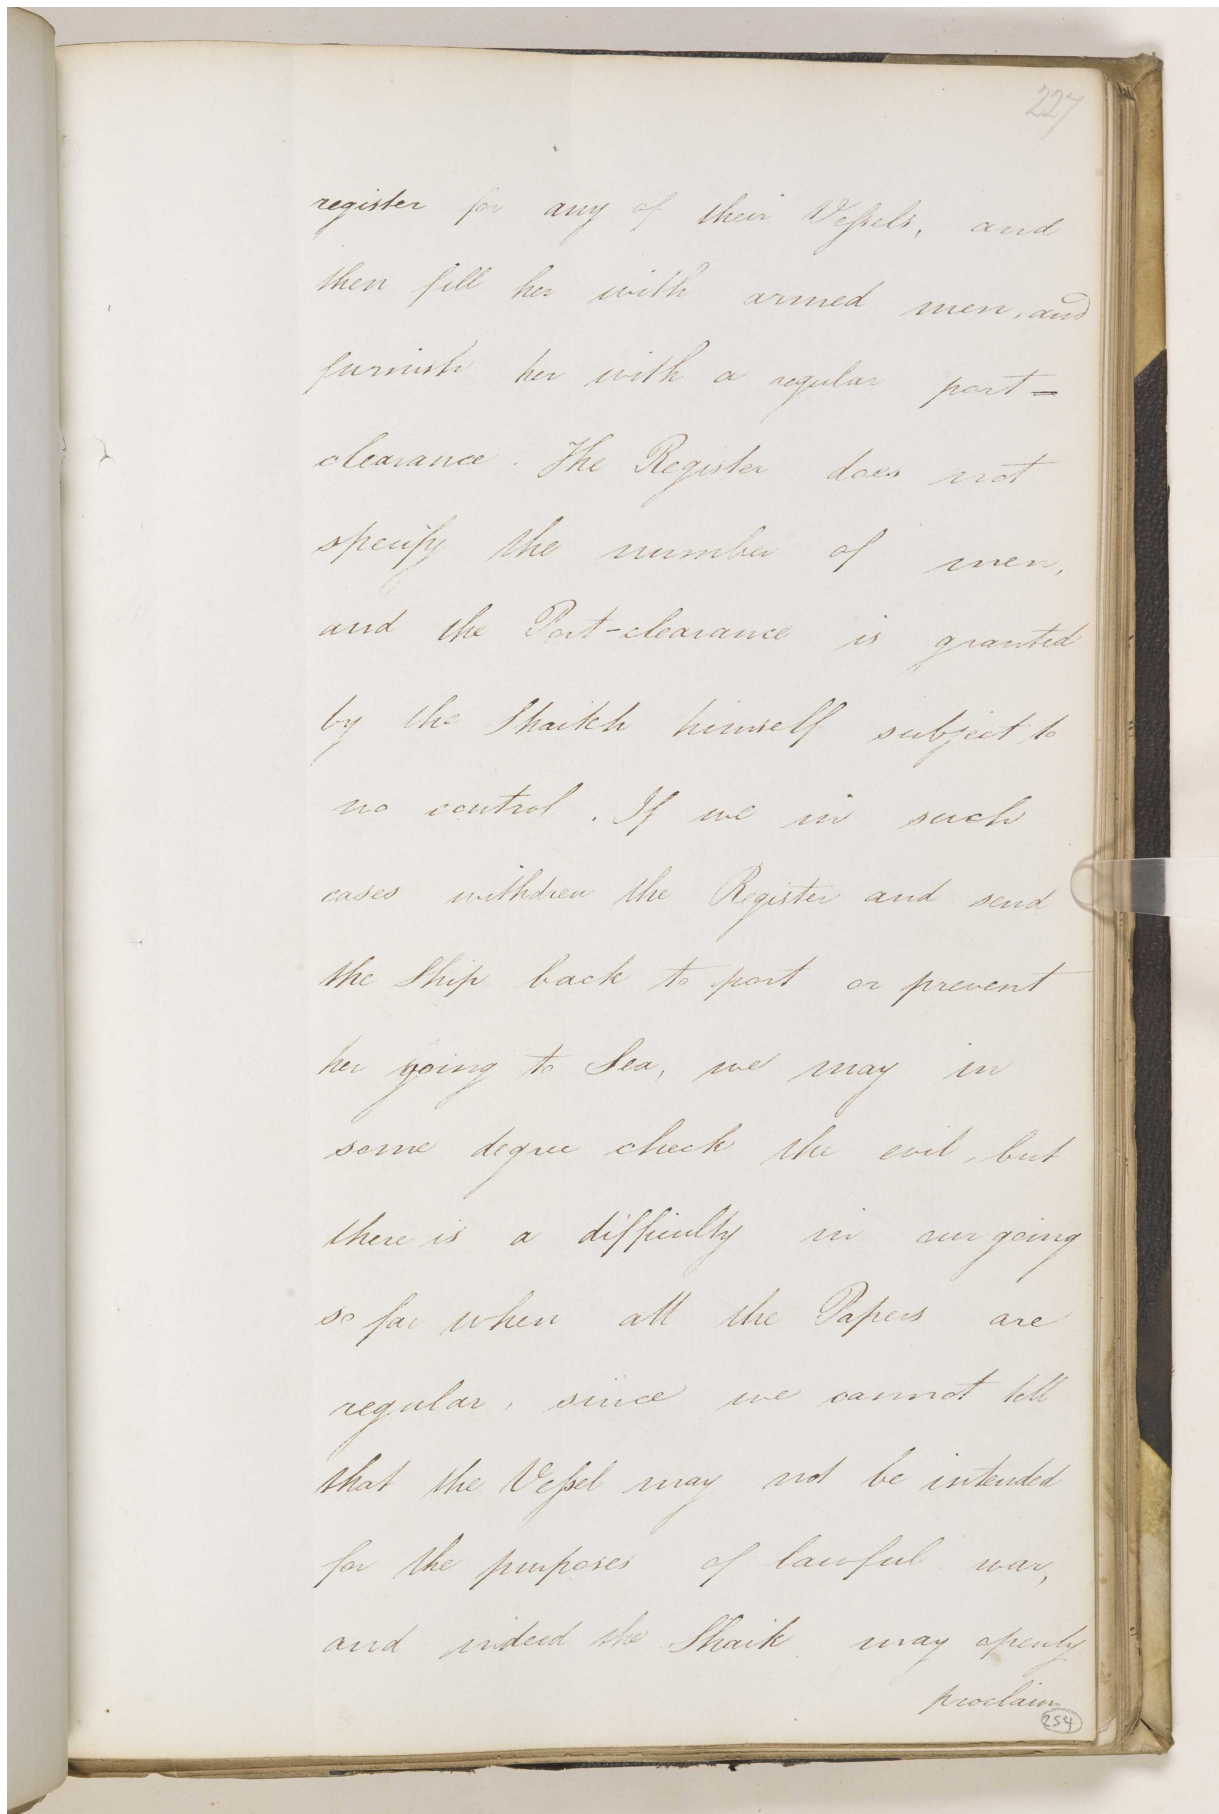 227
register for any of their Vessels, and
then fill her with armed men, and
furnish her with a regular port=
clearance. The Register does not
specify the number of men,
and the Port-clearance is granted
by the Shaikh himself subject to
no control. If we in such
cases withdrew the Register and send
the Ship back to port or prevent
her going to Sea, we may in
some degree check the evil, but
there is a difficulty in our going
so far when all the Papers are
regular, since we cannot tell
that the Vessel may not be intended
for the purposes of lawful war,
and indeed the Shaik may openly
proclaim
254